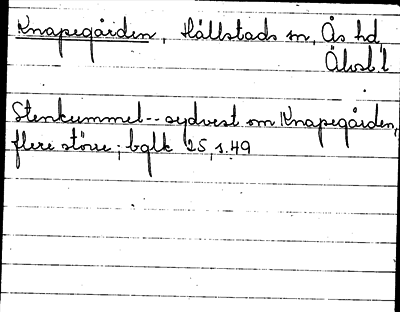 Knapegården, Hällstads sn, Ås hd,
Älvsb. l
Stenkummel -- sydvest om Knapegården,
flere större; bglk 25, s. 49